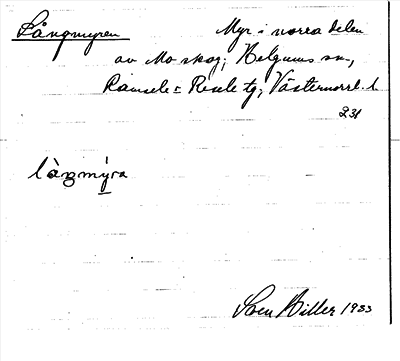 Långmyren Myr i norra delen
av Mo skog; Helgums sn,
Ramsele o Resele tg; Västernorrl. l.
231
làŋmy̓ra
Sven Hiller 1933